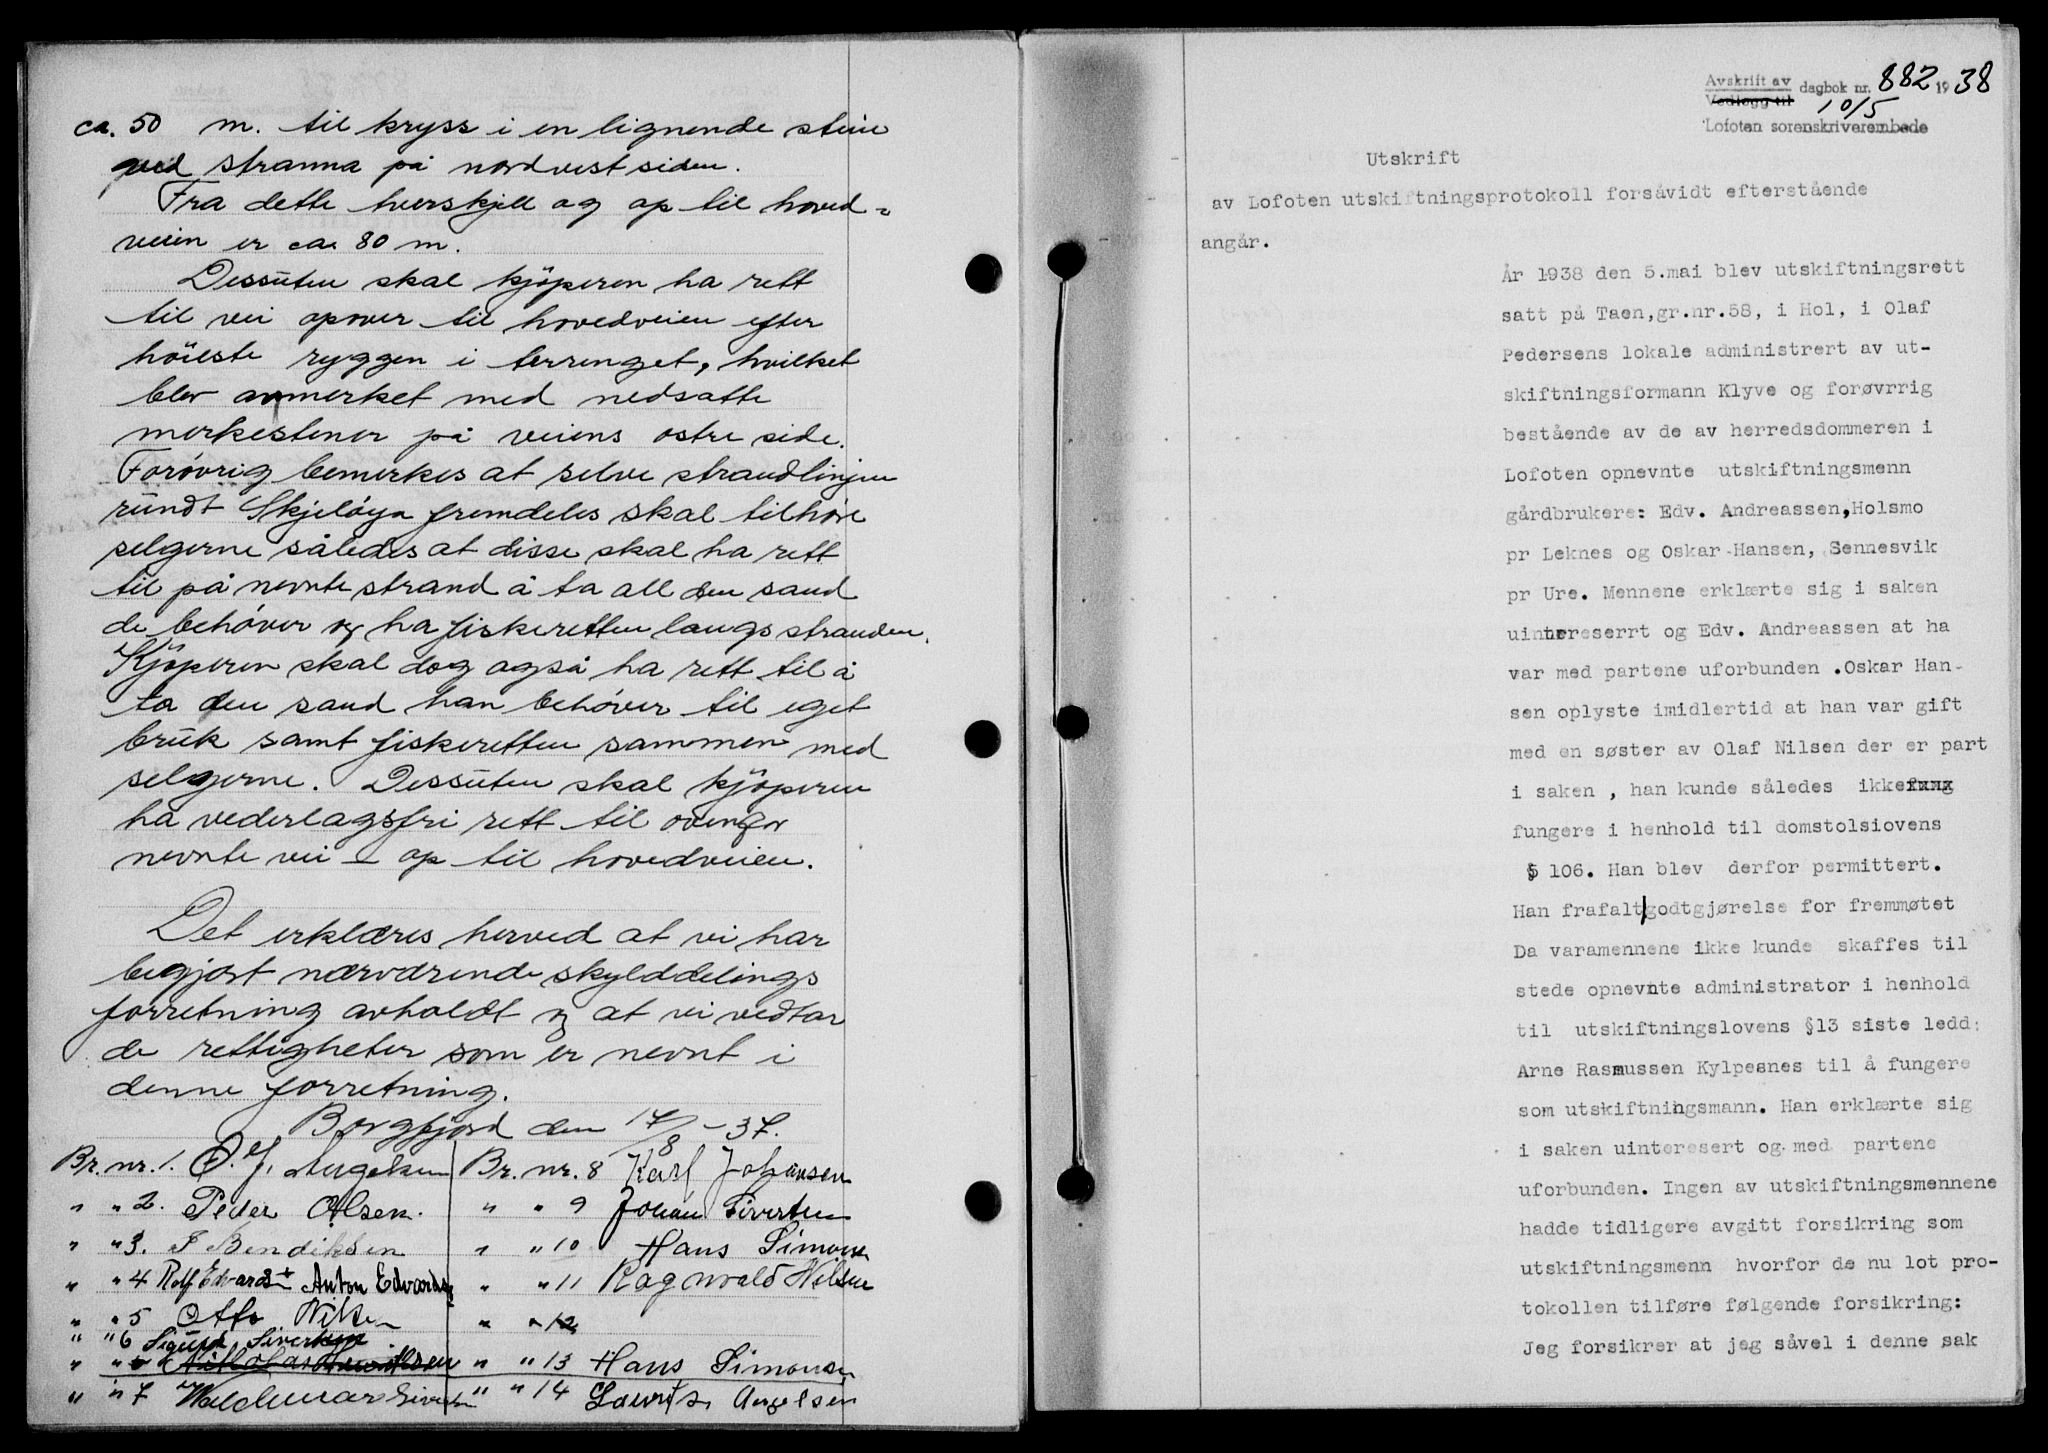 ca. 50 m. til kryss i en lignende stein
ved stranna på nordvestsiden.
Fra dette hverskjell og op til hoved-
veien er ca. 80 m.
Dessuten skal kjöperen ha rett
til vei opover til hovedveien efter
höieste ryggen i terrenget, hvilket
blev anmerket med nedsatte
merkestener på veiens östre side.
Forövrig bemerkes at selve strandlinjen
rundt Skjelöya fremdeles skal tilhöre
selgerne således at disse skal ha rett
til på nevnte strand å ta all den sand
de behöver og ha fiskeretten langs stranden.
Kjöperen skal dog også ha rett til å
ta den sand han behöver til eget
bruk samt fiskeretten sammen med
selgerne. Dessuten skal kjöperen
ha vederlagsfri rett til ovenfor
nevnte vei op til hovedveien.
Det erklæres herved at vi har
begjært nærværende skylddelings
forretning avholdt og at vi vedtar
de rettigheter som er nevnt i
denne forretning.
Borgfjord den 17/8 - 37.
Br. nr. 1. O. J. Angelsen
" " 2. Peder Olsen.
" " 3. J Bendiksen
" " 4 Rolf Edvards + Anton Edvards
" " 5 Otto Nilsen
" " 6 Sigurd Sivertsen
" " 7 Waldemar Sivertsen
Br. nr. 8 Karl Johansen
" " 9 Johan Sivertsen
" " 10 Hans Simonsen
" " 11 Ragnvald Nilsen
" " 12
" " 13 Hans Simonsen
" " 14 Laurits Angelsen
Avskrift av
Vedlegg til dagbok nr. 882 1938
10/5
Lofoten sorenskriverembede
Utskrift
av Lofoten utskiftningsprotokoll forsåvidt efterstående
angår.
År 1938 den 5.mai blev utskiftningsrett
satt på Taen,gr.nr.58, i Hol, i Olaf
Pedersens lokale administrert av ut-
skiftningsformann Klyve og forøvrrig
bestående av de av herredsdommeren i
Lofoten opnevnte utskiftningsmenn
gårdbrukere: Edv. Andreassen,Holsmo
pr Leknes og Oskar Hansen, Sennesvik
pr Ure. Mennene erklærte sig i saken
uintereserrt og Edv. Andreassen at ha
var med partene uforbunden .Oskar Han-
sen oplyste imidlertid at han var gift
med en søster av Olaf Nilsen der er part
i saken , han kunde således ikkefung
fungere i henhold til domstolsiovens
§ 106. Han blev derfor permittert.
Han frafalt/godtgjørelse for fremmøtet
Da varamennene ikke kunde skaffes til
stede opnevnte administrator i henhold
til utskiftningslovens §13 siste ledd:
Arne Rasmussen Kylpesnes til å fungere
som utskiftningsmann. Han erklærte sig
i saken uinteresert og med partene
uforbunden. Ingen av utskiftningsmennene
hadde tidligere avgitt forsikring som
utskiftningsmenn hvorfor de nu lot pro-
tokollen tilføre følgende forsikring:
Jeg forsikrer at jeg såvel i denne sak